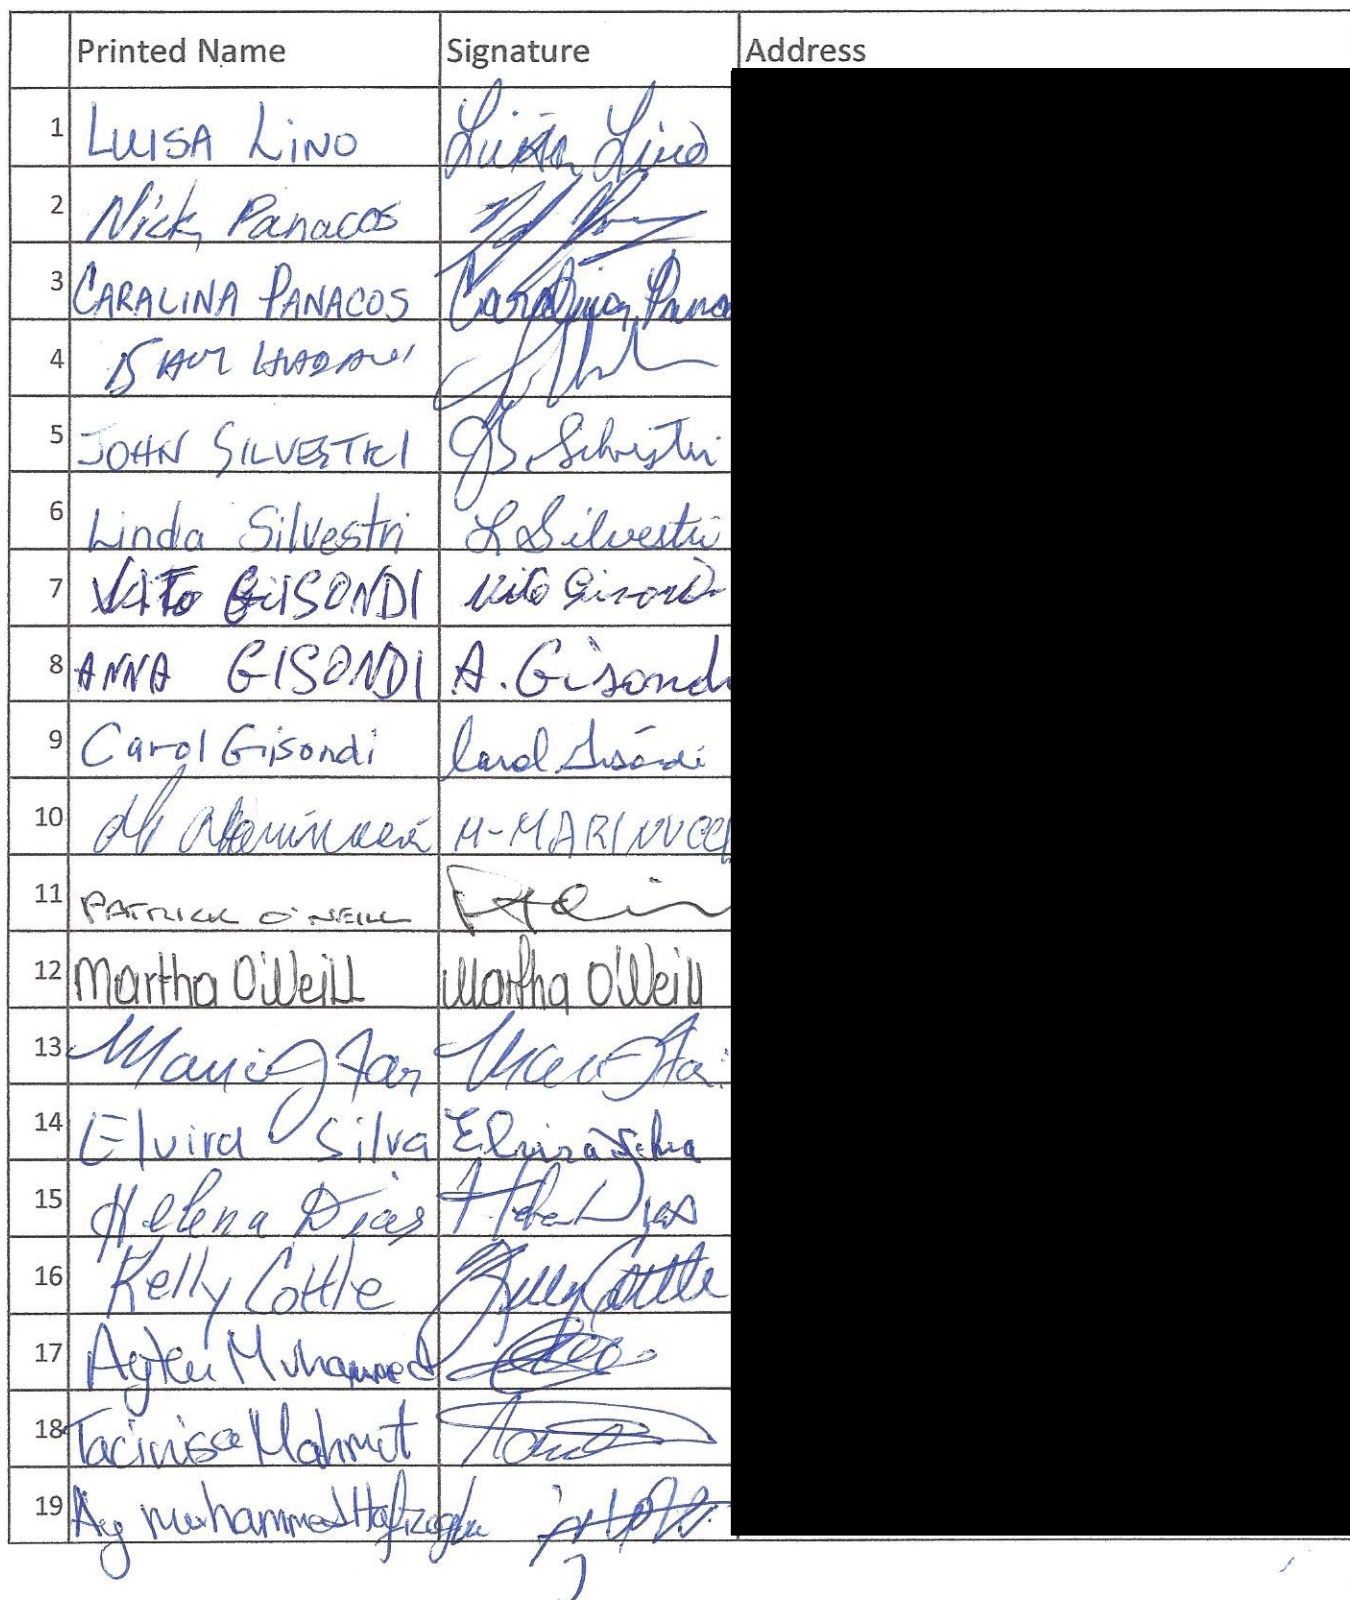 Printed Name Signature Address
1 LUISA LINO Luisa Lino
2 Nick Panacos
3 CARALINA PANACOS Caralina Pana
4
5 JOHN SILVESTRI JB Silvestri
6 Linda Silvestri L Silvestri
7 VITO GISONDI Vito Gisondi
8 ANNA GISONDI A. Gisondi
9 Carol Gisondi Carol Gisondi
10 M Marinucci M-MARINUCCI
11 PATRICK O'NEILL
12 Martha O'Neill Martha O'Neill
13
14 Elvira Silva Elvira Silva
15 Helena Dias Helena Dias
16 Kelly Cottle Kelly Cottle
17 Muhammed
18 Mahmut
19 Ay muhammed